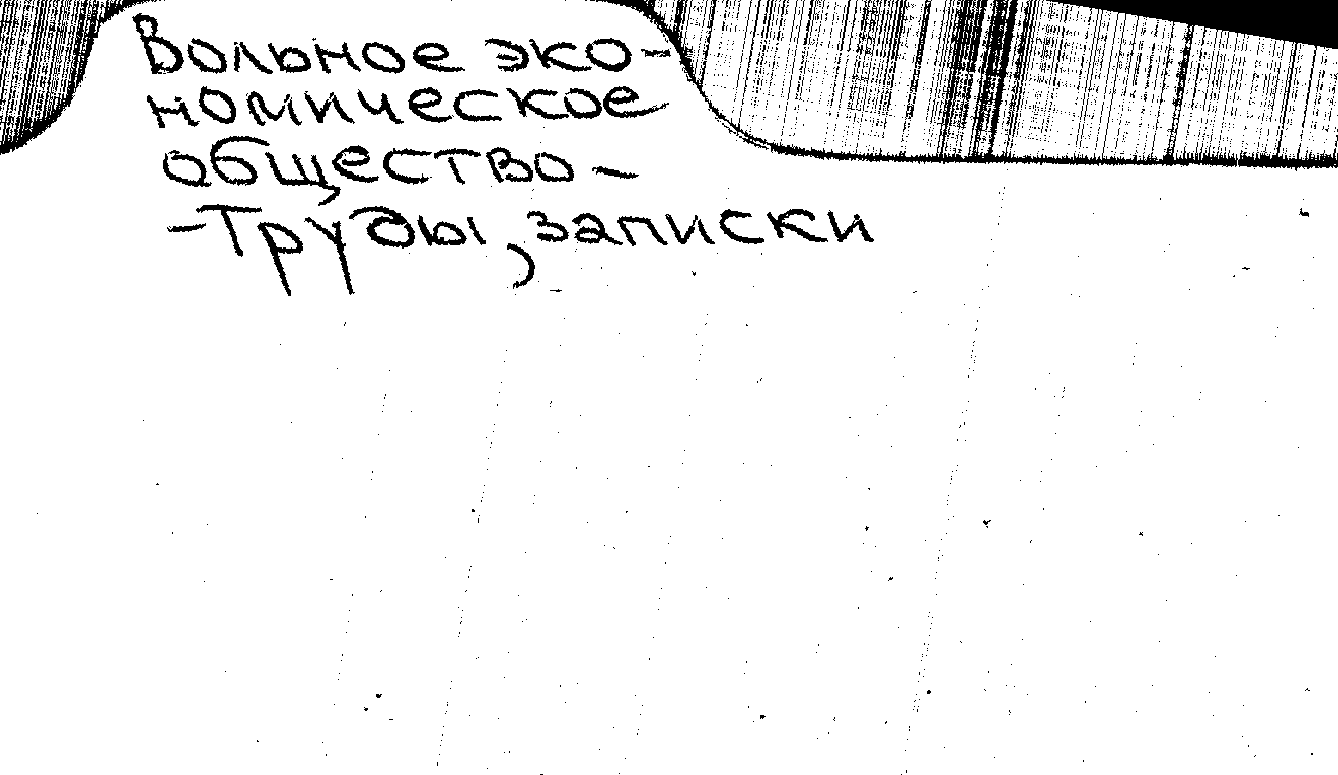 Вольное эко-
номическое
общество -
- Труды, записки